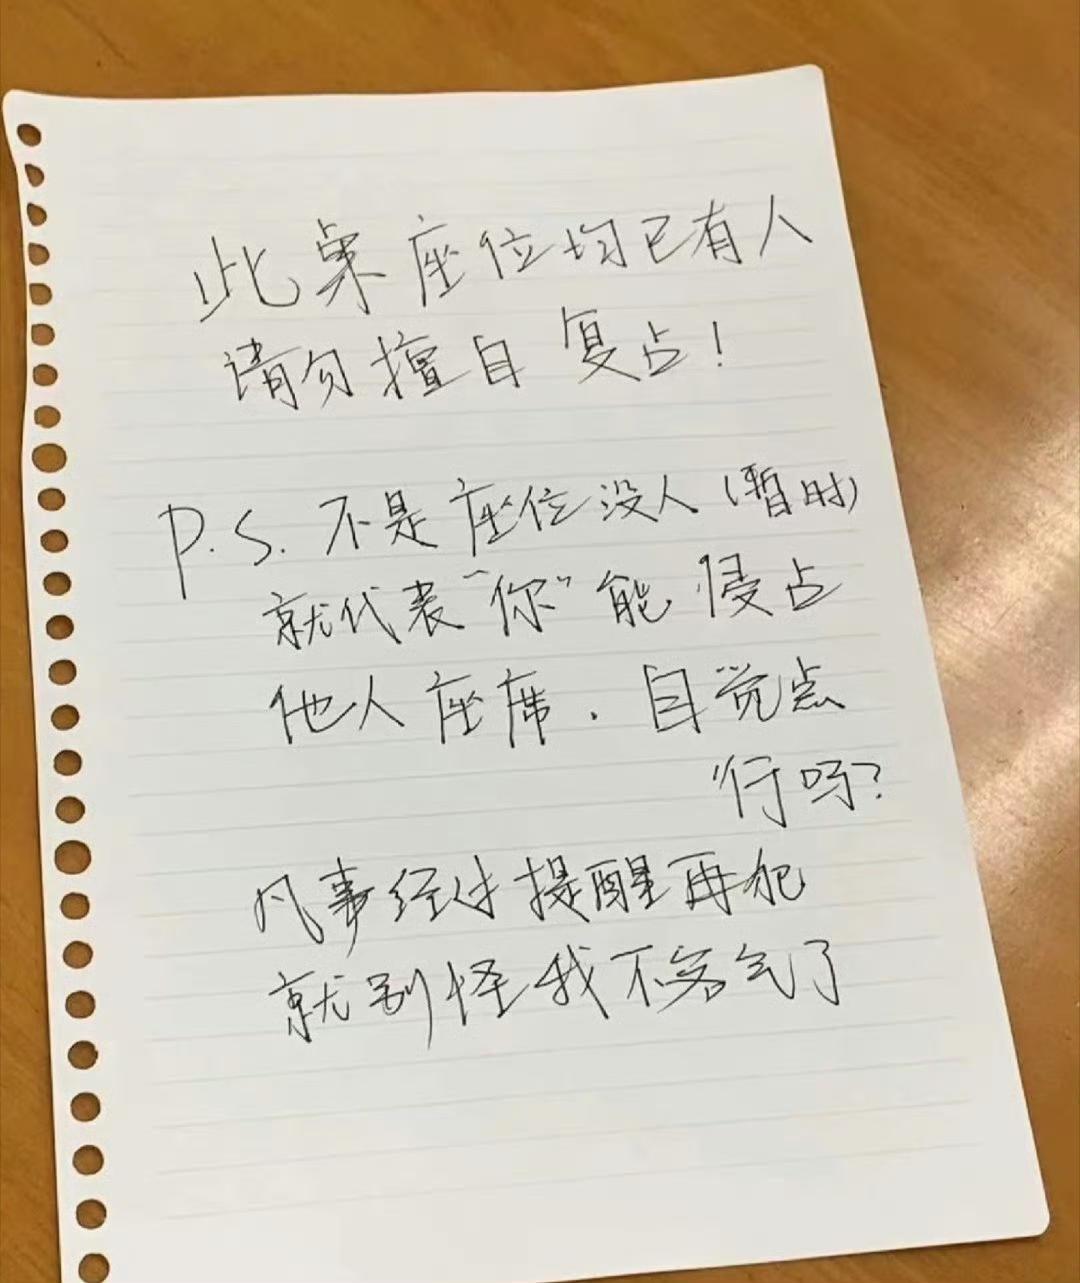 此桌座位均已有人
请勿擅自复占！
P.S. 不是座位没人（暂时）
就代表“你”能侵占
他人座席．自觉点
行吗？
凡事经过提醒再犯
就别怪我不客气了